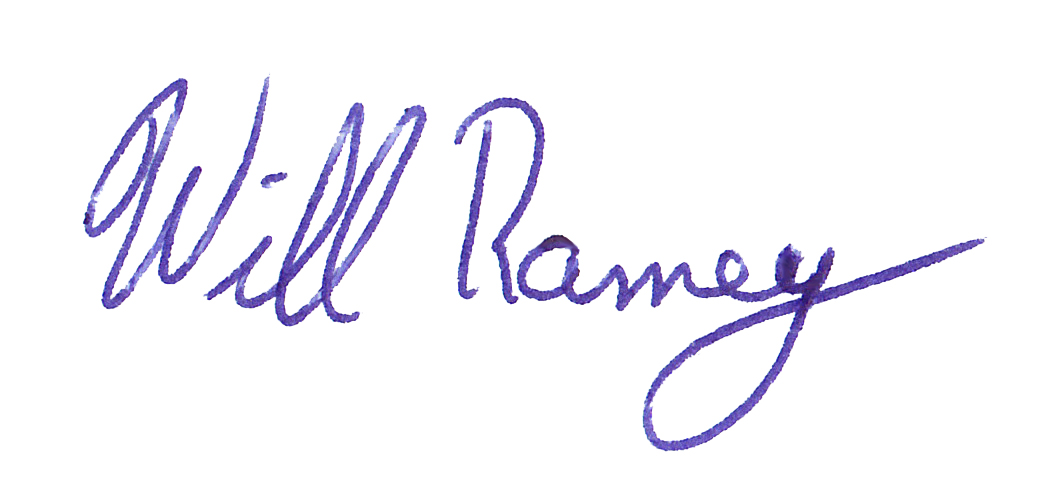 Will Ramey